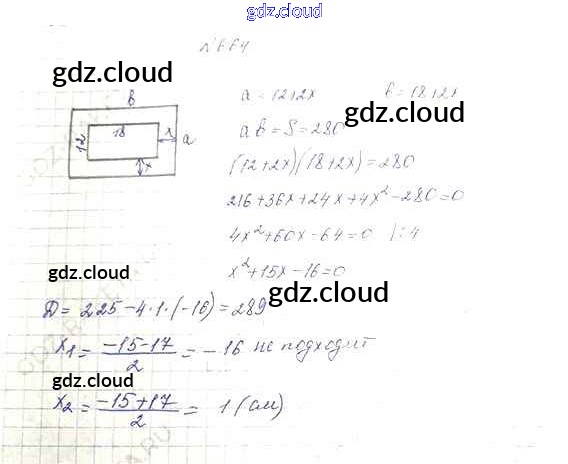 gdz.cloud
№664
gdz.cloud
в
a = 12+2x в = 18+2x
gdz.cloud
18 x a
12
x
aв = S = 280
(12+2x)(18+2x) = 280
216+36x+24x+4x²-280=0
4x²+60x-64=0 /:4
x²+15x-16=0
gdz.cloud
gdz.cloud
D = 225-4·1·(-16) = 289
x₁ = -15-17/2 = -16 не подходит
gdz.cloud
gdz.cloud
x₂ = -15+17/2 = 1 (см)